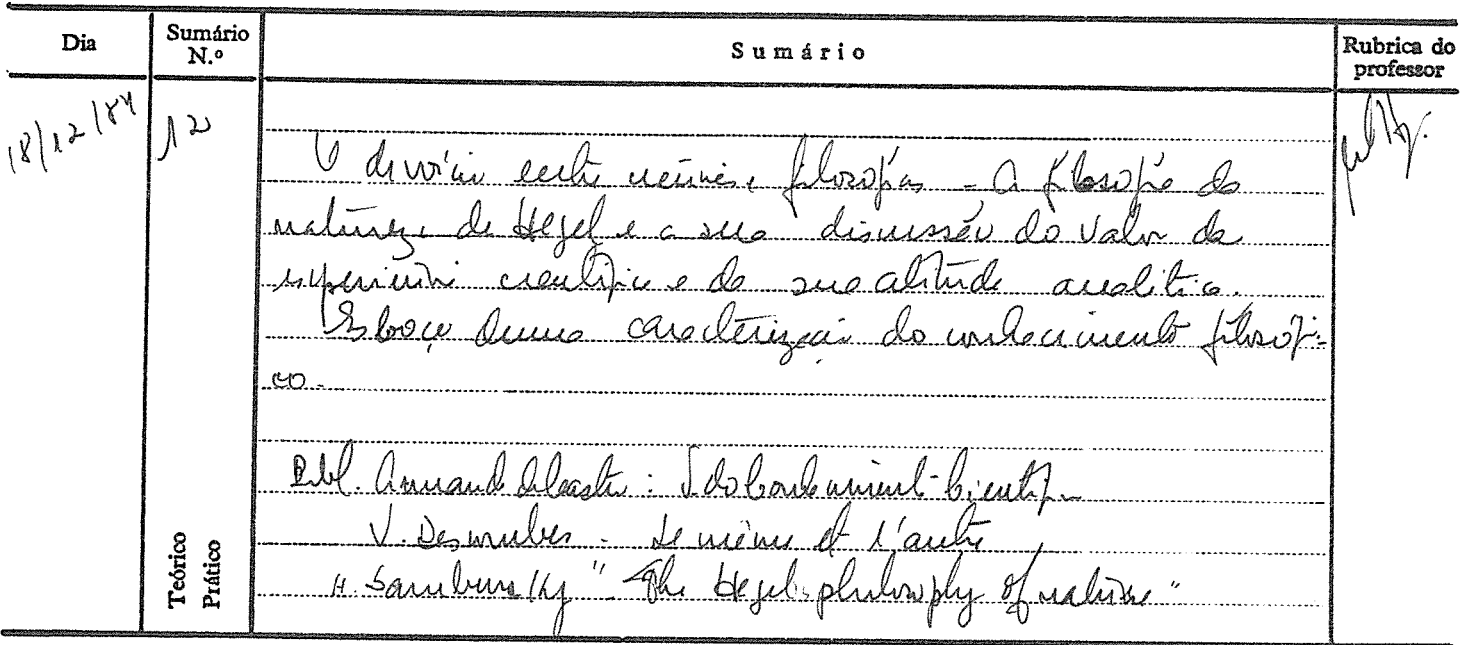 Dia
Sumário N.º
Sumário
Rubrica do professor
18/12/84
12
O divórcio entre ciências e filosofias - A filosofia da
natureza de Hegel e a sua discussão do valor da
experiência científica e da sua atitude analítica.
Esboço duma caracterização do conhecimento filosófi-
co.
Bibl. Armando de Castro: T. do Conhecimento Científico
V. Descombes - Le même et l'autre
H. Sambursky "The Hegel philosophy of nature"
Teórico
Prático